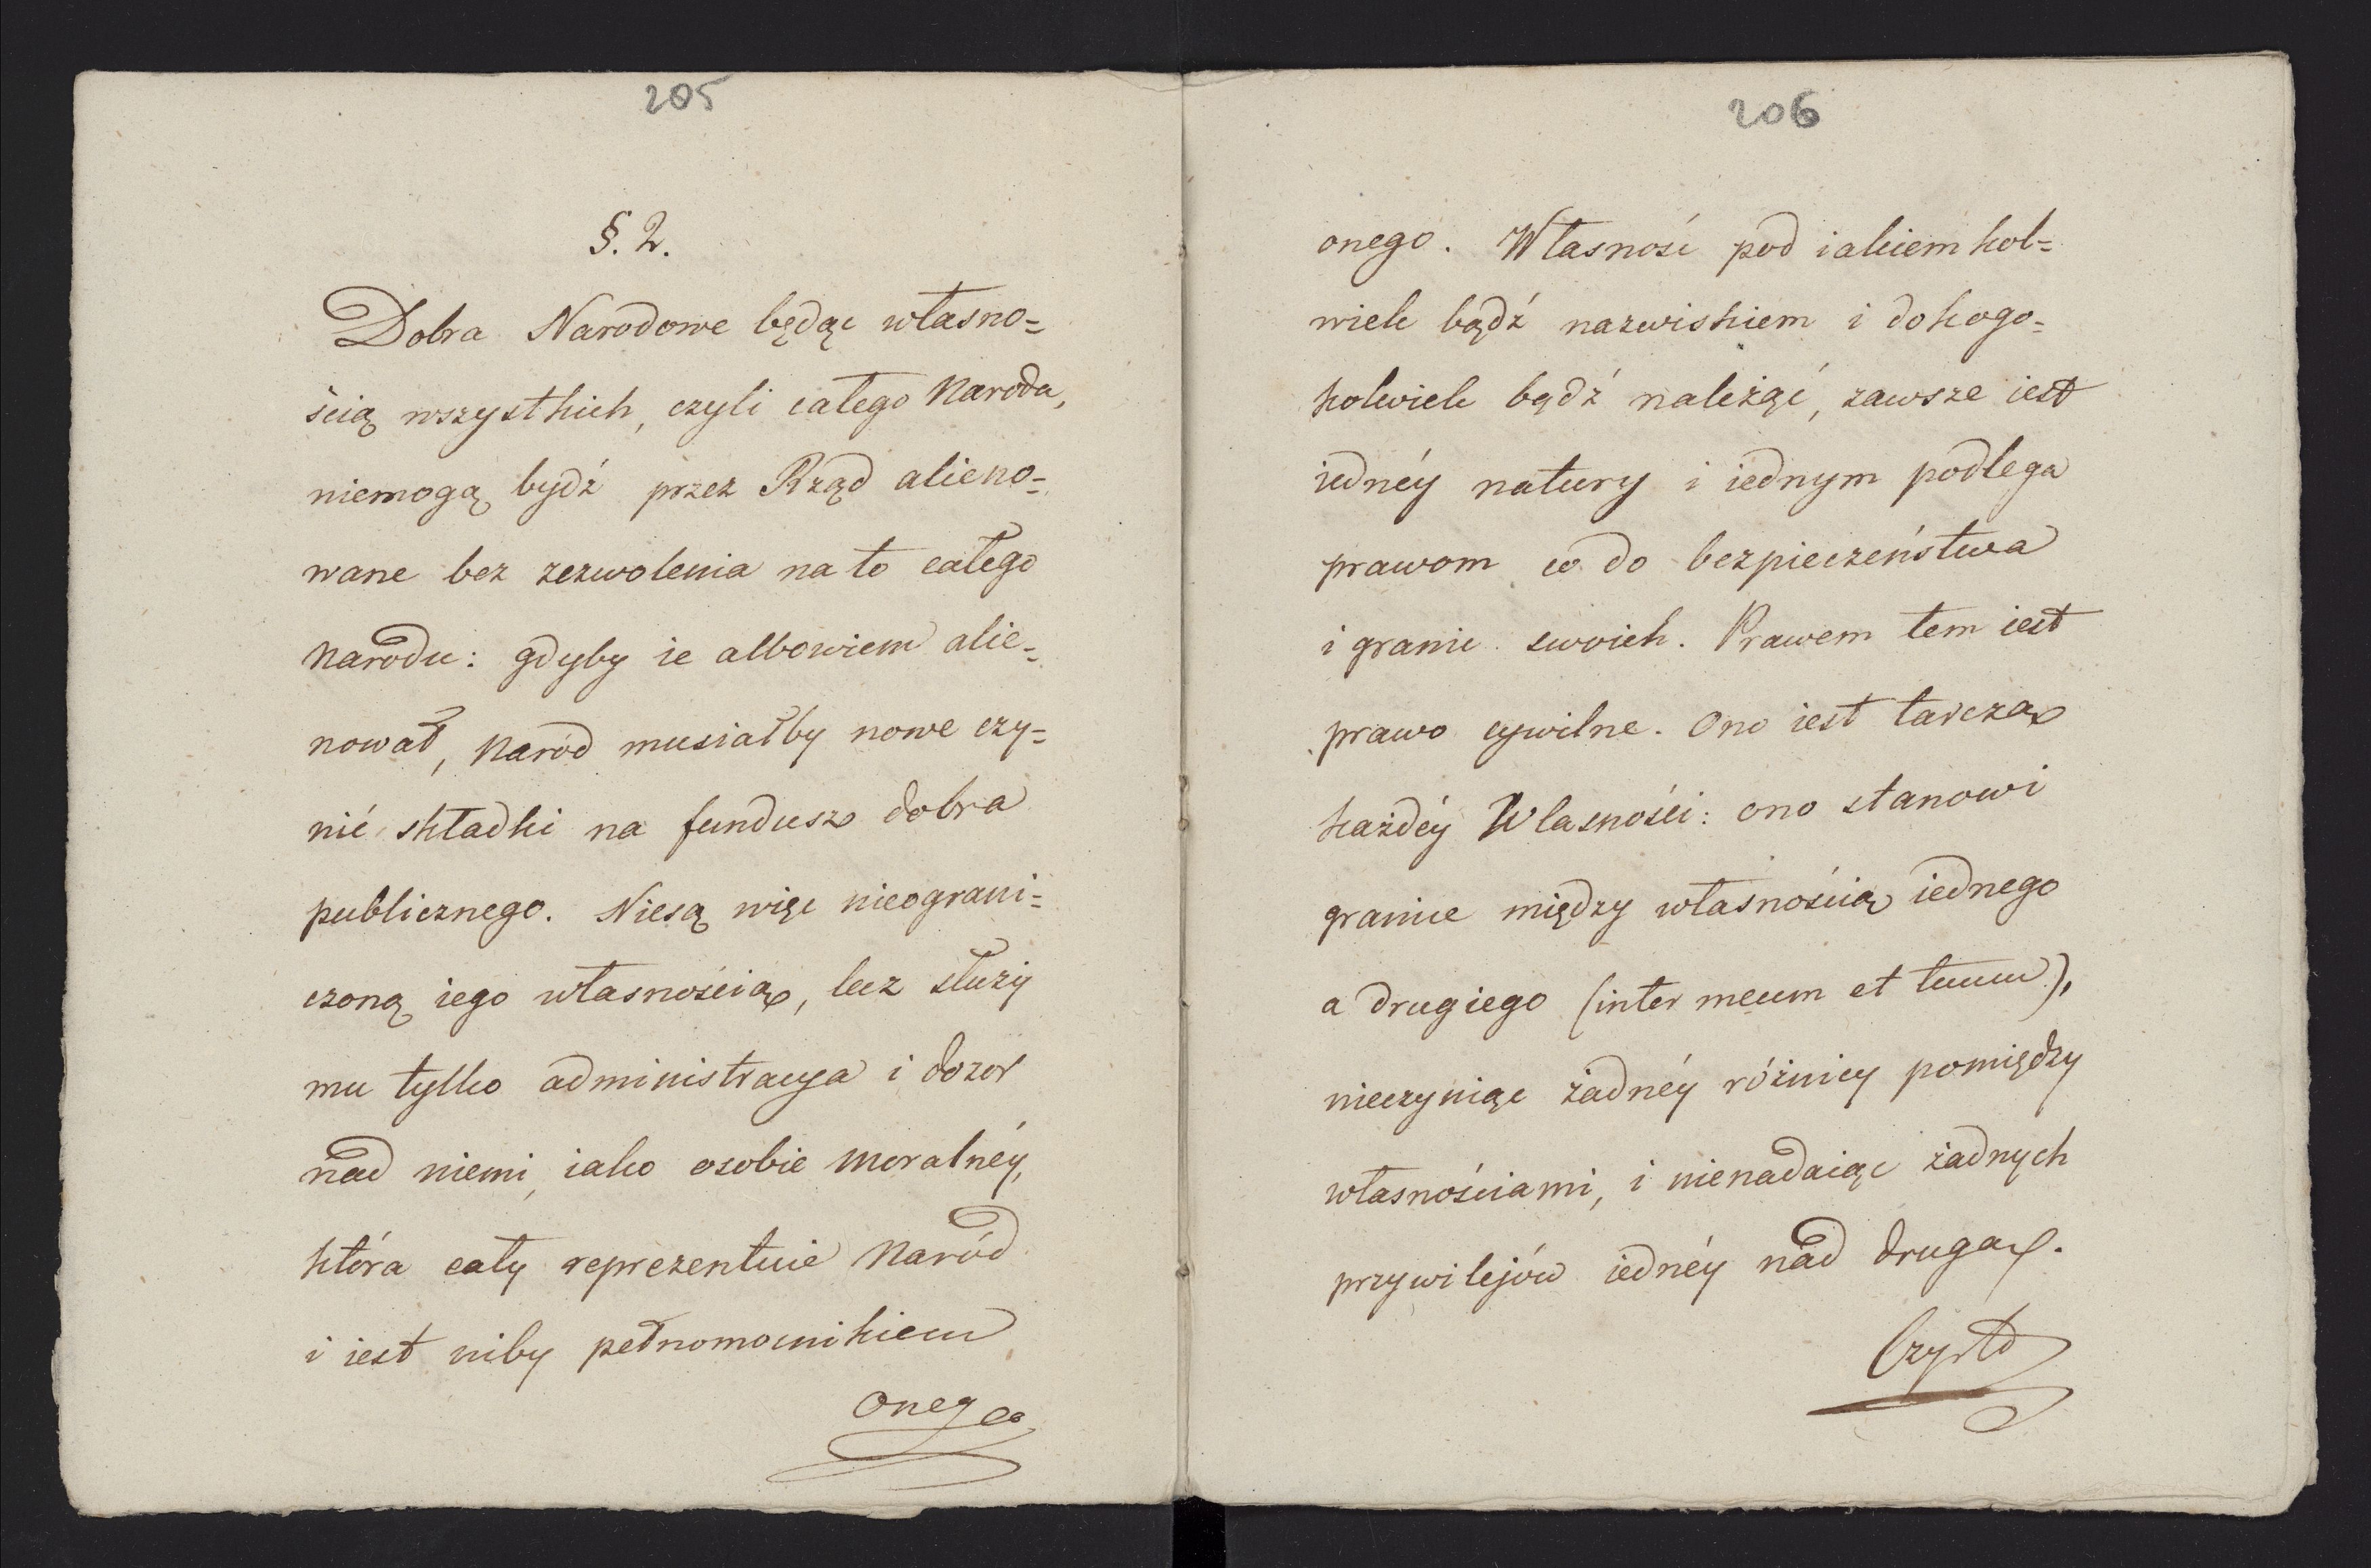 205
§. 2.
Dobra Narodowe będąc własno=
ścią wszystkich, czyli całego Narodu,
niemogą bydź przez Rząd alieno=
wane bez zezwolenia na to całego
Narodu: gdyby ie albowiem alie=
nował, Naród musiałby nowe czy=
nić składki na fundusz dobra
publicznego. Niesą więc nieograni=
czoną iego własnością, lecz służy
mu tylko administracya i dozor
nad niemi, iako osobie moralnéy,
która cały reprezentuie Naród
i iest niby pełnomocnikiem
onego
206
onego. Własność pod iakiemkol=
wiek bądź nazwiskiem i do kogo=
kolwiek bądź należąć, zawsze iest
iednéy natury i iednym podlega
prawom co do bezpieczeństwa
i granic swoich. Prawem tem iest
prawo cywilne. Ono iest tarczą
każdéy Wlasności: ono stanowi
granice między własnością iednego
a drugiego (inter meum et tuum),
nieczyniąc żadnéy różnicy pomiędzy
własnościami, i nienadaiąc żadnych
przywilejów iednéy nad drugą.
Czyżto